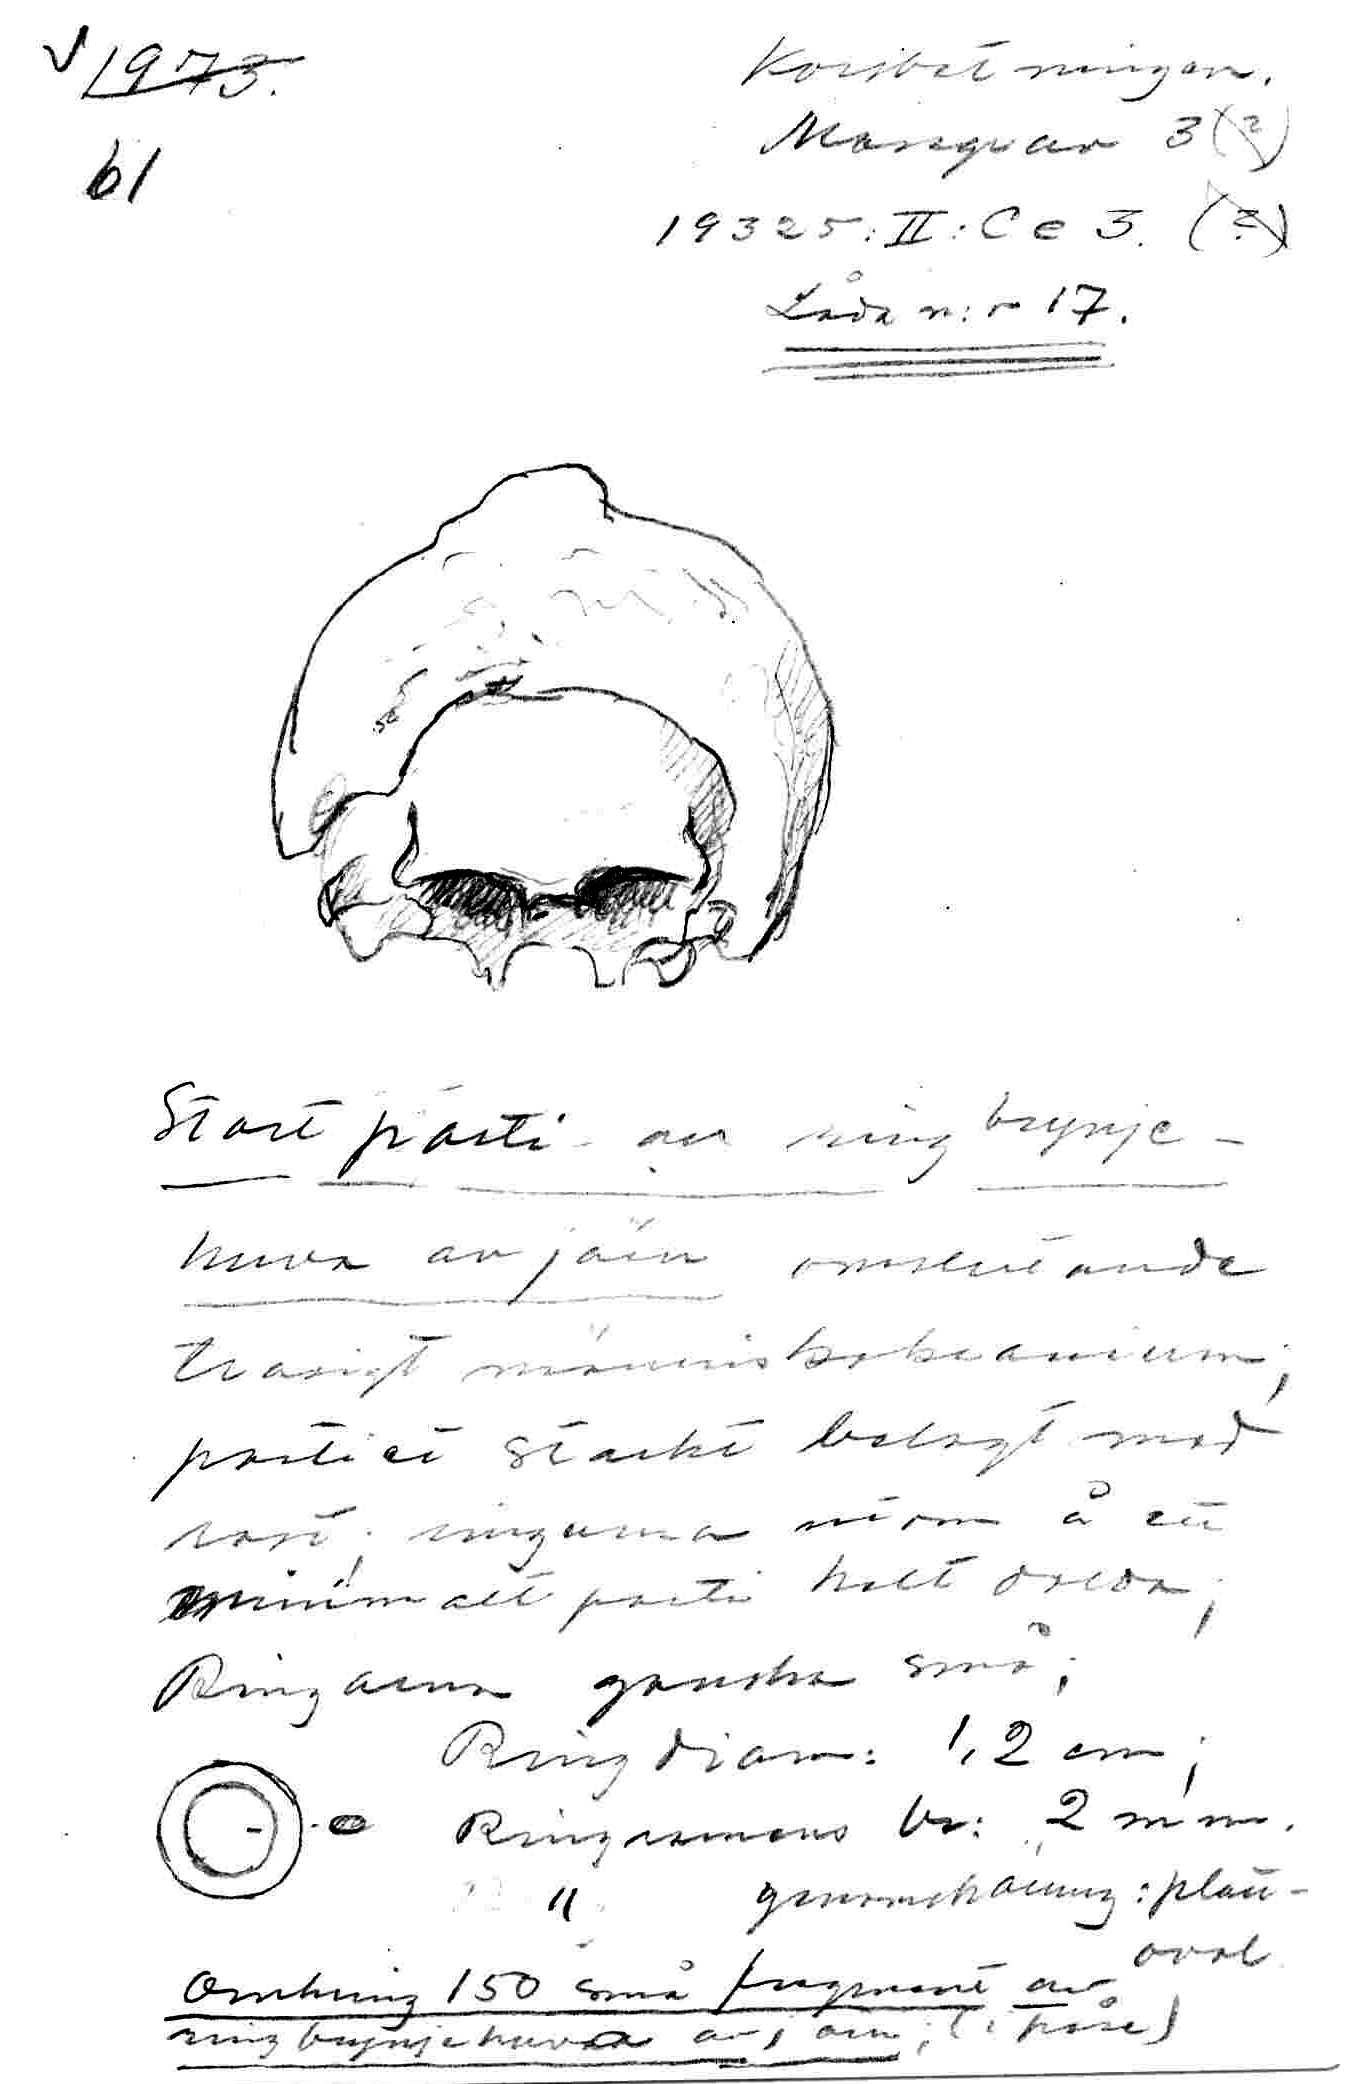 √ 1973.
61
Korsbetningen.
Massgrav 3 (?)
19325:II:Ce 3. (?)
Låda n:r 17.
Stort parti av ringbrynje-
huva av järn omslutande
trasigt människokranium;
partiet starkt belagt med
rost; ringarna utom å ett
minimalt parti helt dolda;
Ringarna ganska små;
Ringdiam: 1,2 cm;
Ringarnans br: 2 mm.
" genomskärning: platt-
oval.
Omkring 150 små fragment av
ringbrynjehuva av järn; (i påse)